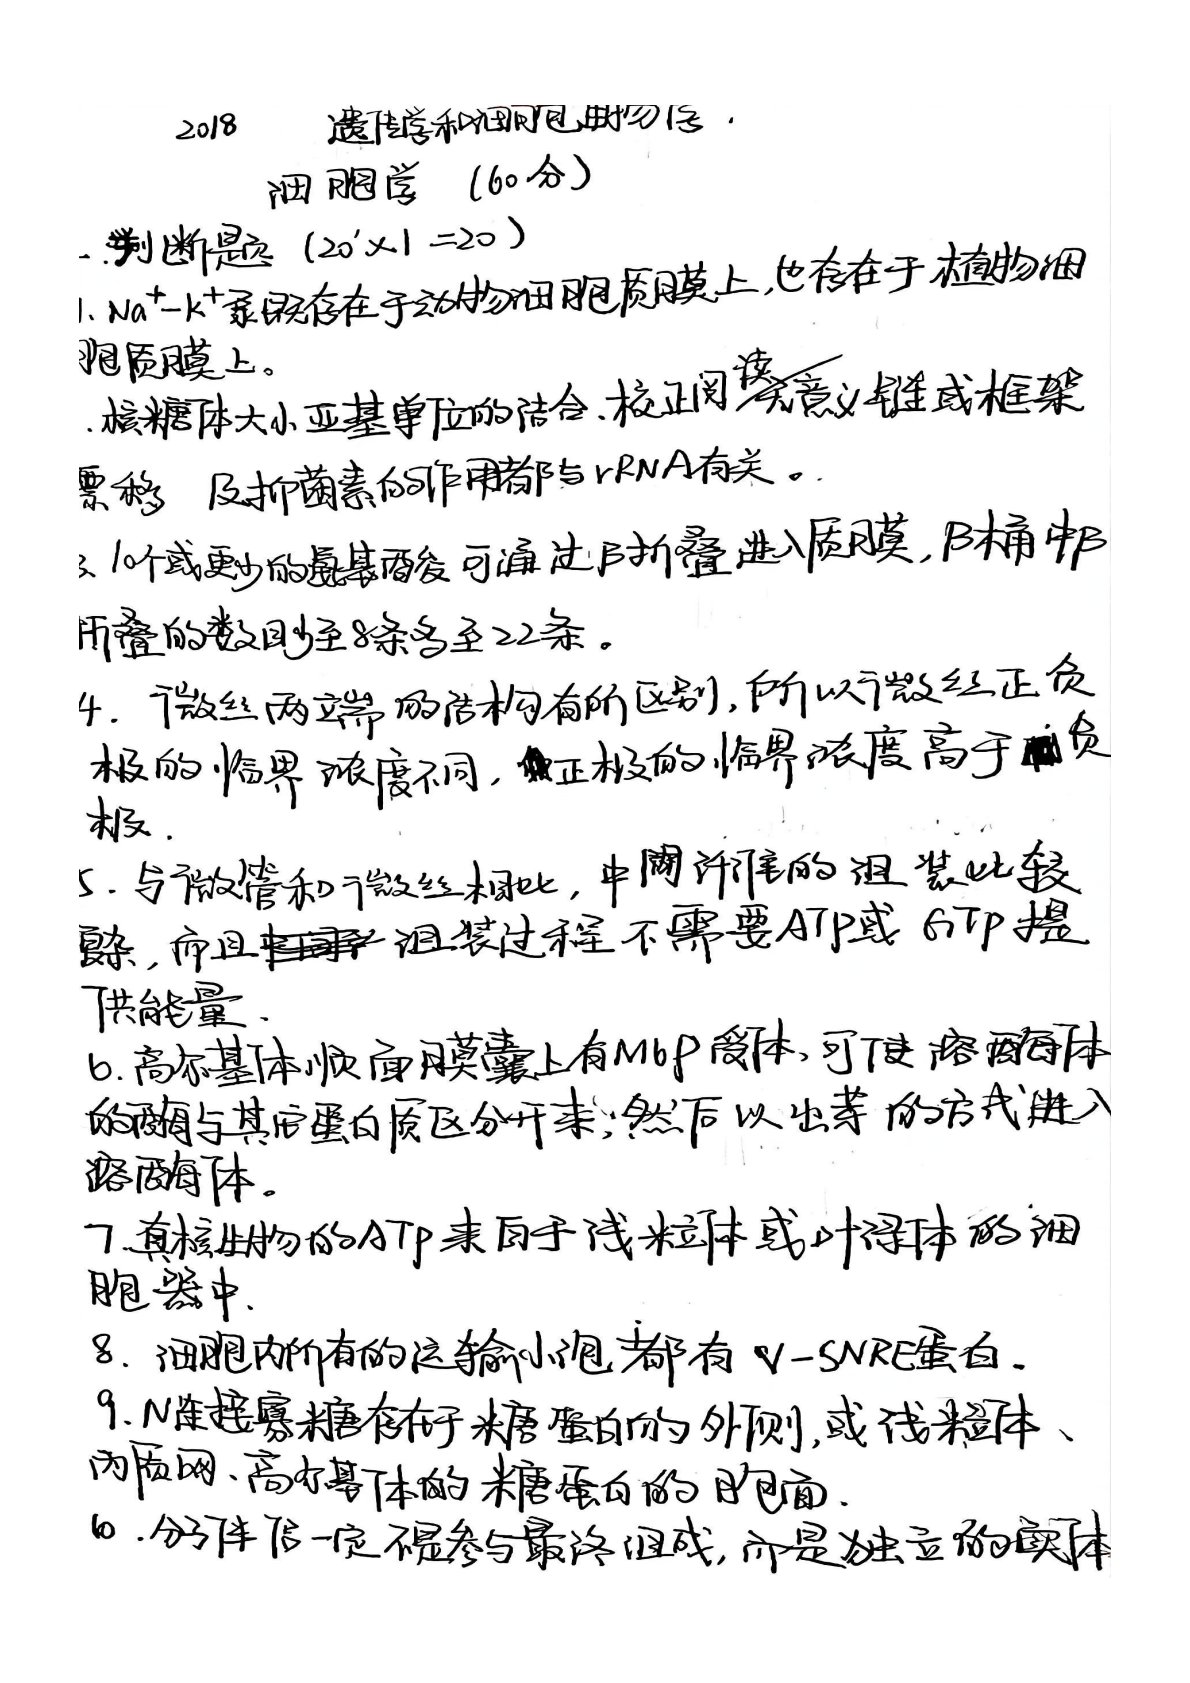 2018 遗传学和细胞生物学.
细胞学 (60分)
一.判断题 (20'×1=20)
1. Na⁺-K⁺泵既存在于动物细胞质膜上,也存在于植物细
胞质膜上。
.核糖体大小亚基单位的结合、校正阅读意义链或框架
漂移 及抑菌素的作用都与rRNA有关。
3、10个或更少的氨基酸可通过β折叠进入质膜,β桶中β
折叠的数目少至8条多至22条。
4. 微丝两端的结构有所区别,所以微丝正负
极的临界浓度不同,正极的临界浓度高于负
极.
5.与微管和微丝相比,中间纤维的组装比较
复杂,而且组装过程不需要ATP或GTP提
供能量.
6.高尔基体顺面膜囊上有M6P受体,可使溶酶体
的酶与其它蛋白质区分开来;然后以出芽的方式进入
溶酶体。
7.真核生物的ATP来自于线粒体或叶绿体的细
胞器中.
8. 细胞内所有的运输小泡都有V-SNRE蛋白.
9.N连接寡糖存在于糖蛋白的外侧,或线粒体、
内质网、高尔基体的糖蛋白的胞面.
10.分子伴侣一定不是参与最终组成,而是独立的实体